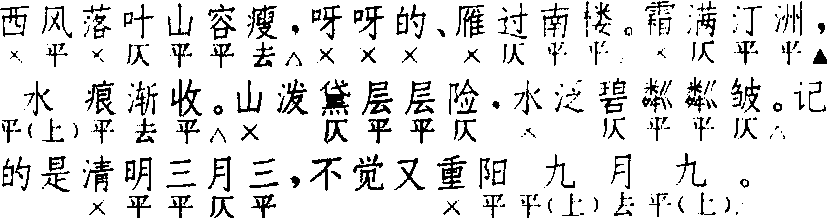 西风落叶山容瘦，呀呀的、雁过南楼。霜满汀洲，
× 平 × 仄 平 平 去 △ × × × × 仄 平 平 × 仄 平 平 ▲
水痕渐收。山泼黛层层险，水泛碧粼粼皱。记
平(上) 平 去 平 △ × 仄 平 平 仄 × 仄 平 平 仄 △
的是清明三月三，不觉又重阳九月九。
× 平 平 仄 平 × 平 平(上) 去 平(上)